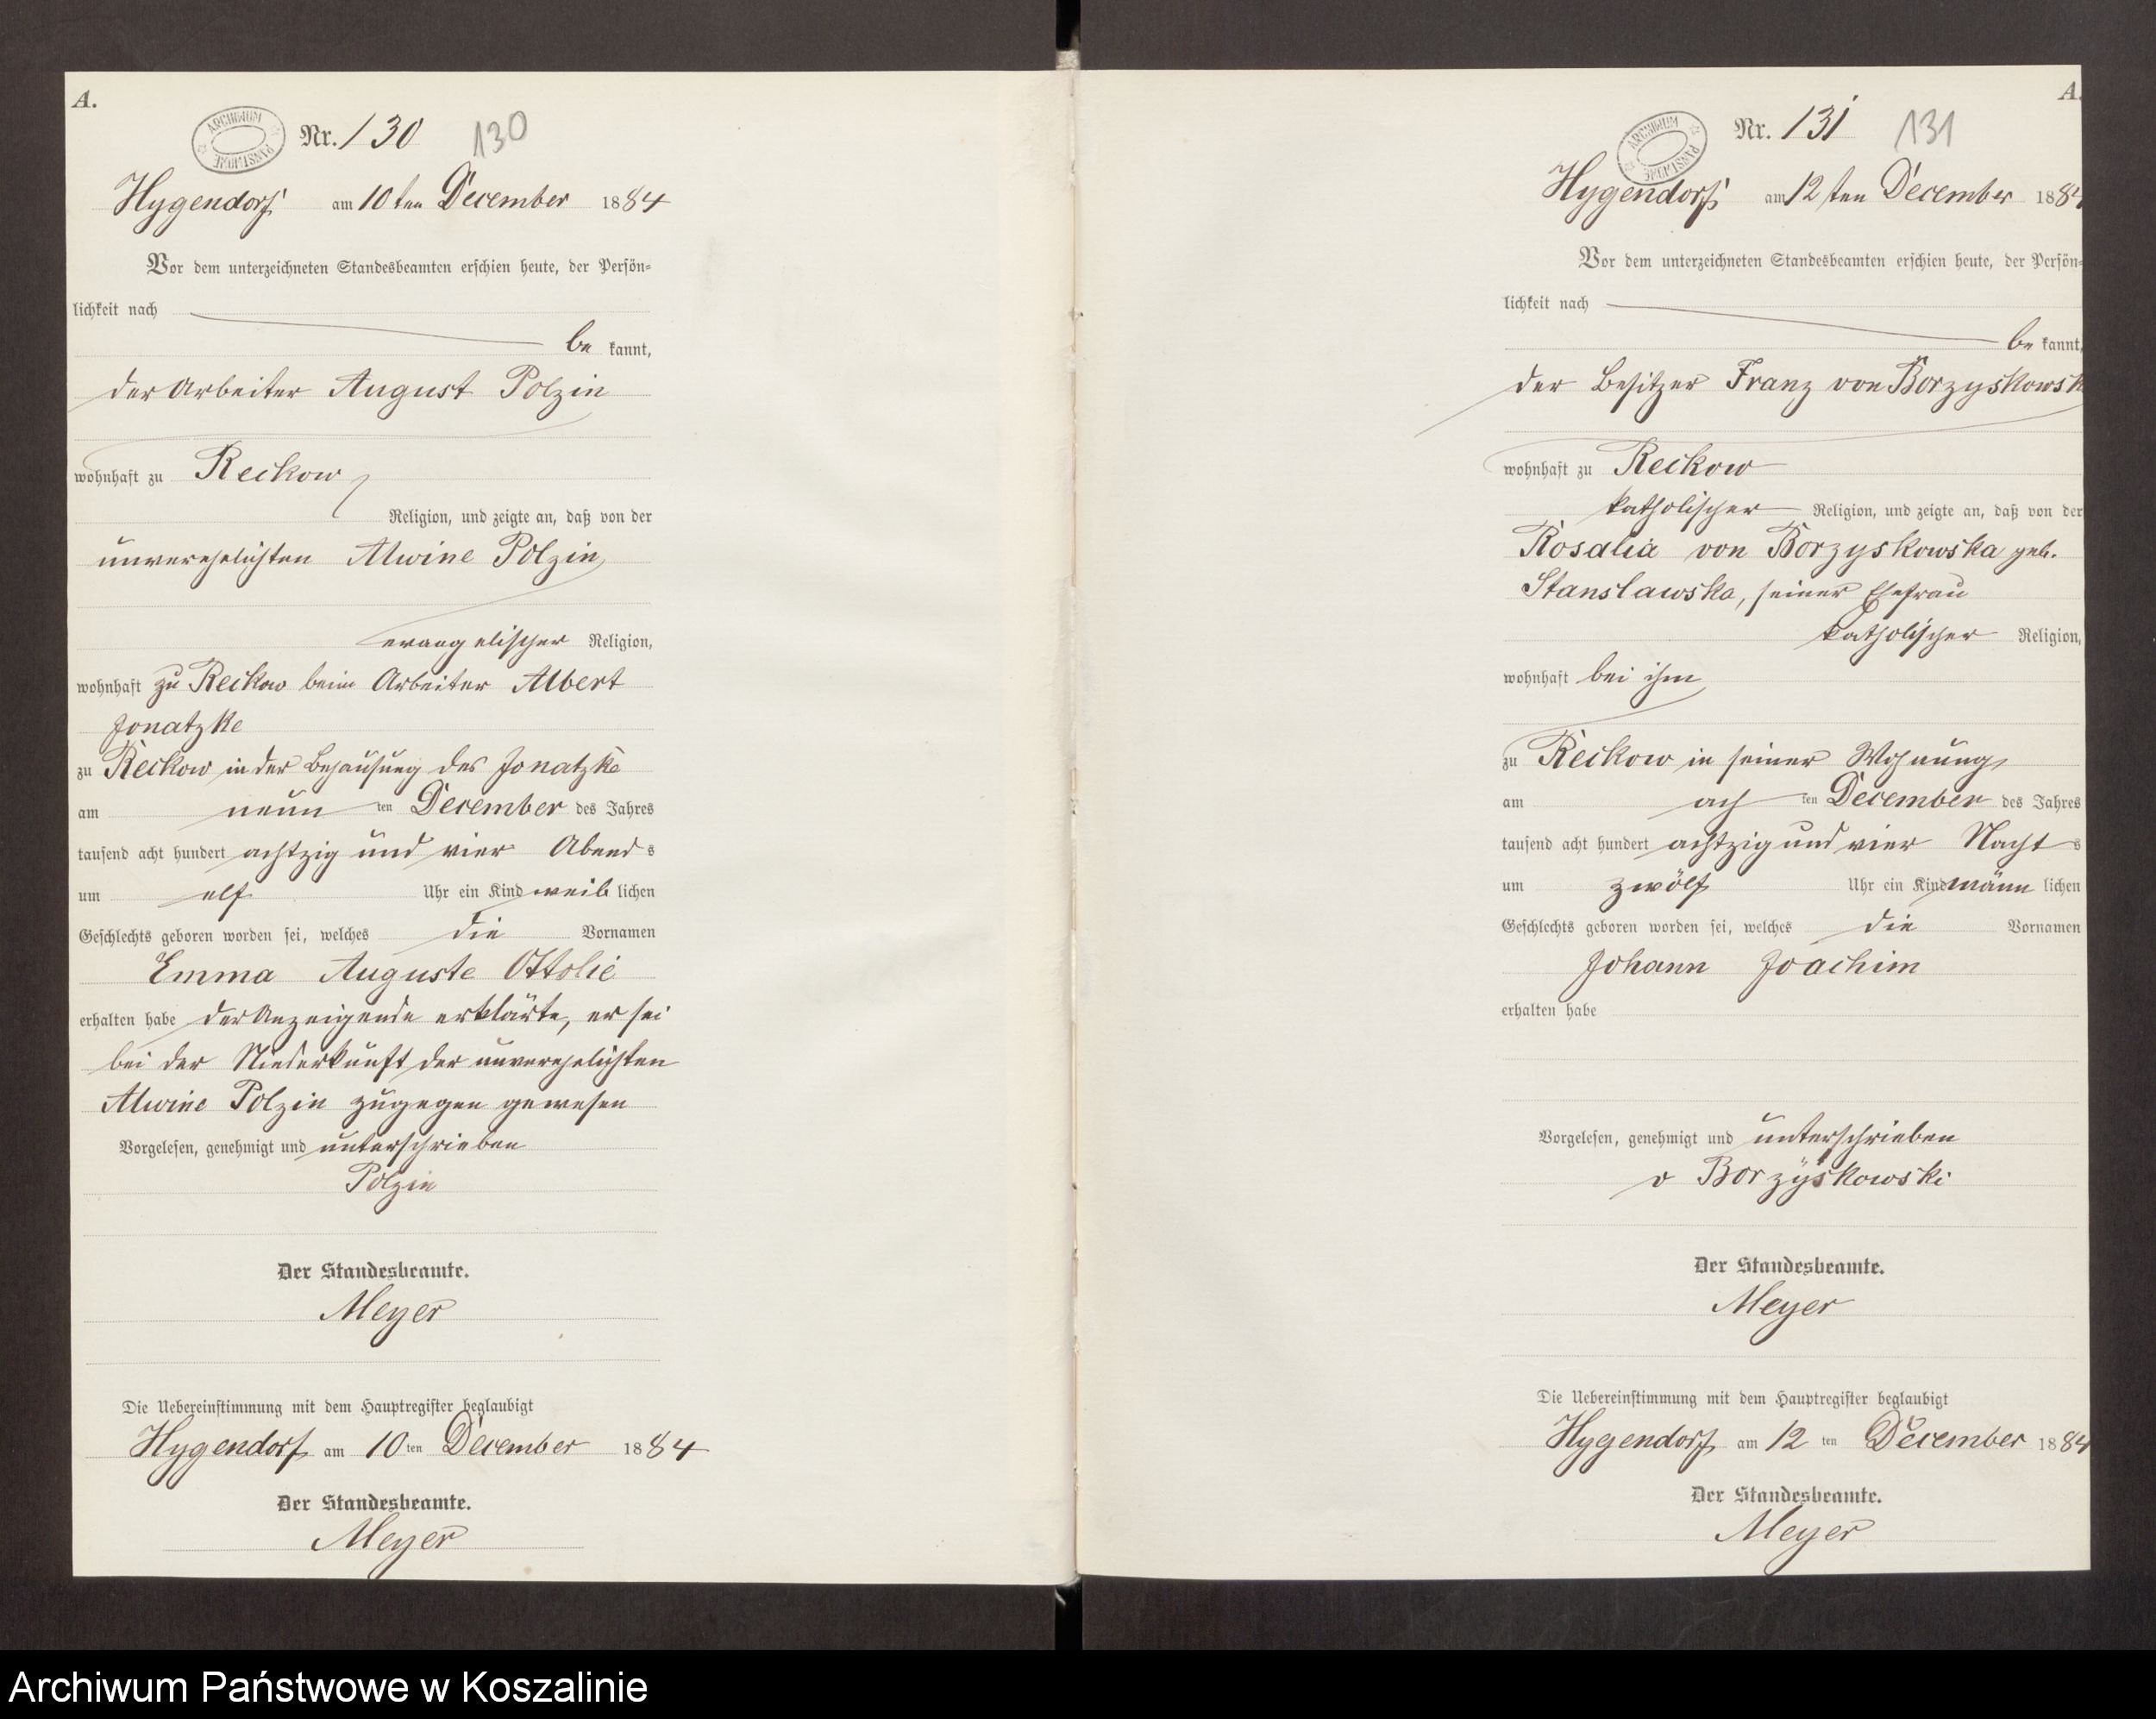 A.
ARCHIWUM PAŃSTWOWE
Nr. 130 130
Hygendorf am 10ten December 1884
Vor dem unterzeichneten Standesbeamten erschien heute, der Persön-
lichkeit nach
be kannt,
der Arbeiter August Polzin
wohnhaft zu Reckow
Religion, und zeigte an, daß von der
unverehelichten Alwine Polzin
evangelischer Religion,
wohnhaft zu Reckow beim Arbeiter Albert
Jonatzke
zu Reckow in der Behausung des Jonatzke
am neun ten December des Jahres
tausend acht hundert achtzig und vier Abend s
um elf Uhr ein Kind weib lichen
Geschlechts geboren worden sei, welches die Vornamen
Emma Auguste Ottolie
erhalten habe der Anzeigende erklärte, er sei
bei der Niederkunft der unverehelichten
Alwine Polzin zugegen gewesen
Vorgelesen, genehmigt und unterschrieben
Polzin
Der Standesbeamte.
Meyer
Die Uebereinstimmung mit dem Hauptregister beglaubigt
Hygendorf am 10 ten December 1884
Der Standesbeamte.
Meyer
A.
ARCHIWUM PAŃSTWOWE
Nr. 131 131
Hygendorf am 12 ten December 1884
Vor dem unterzeichneten Standesbeamten erschien heute, der Persön-
lichkeit nach
be kannt,
der Besitzer Franz von Borzyskowsk
wohnhaft zu Reckow
katholischer Religion, und zeigte an, daß von der
Rosalia von Borzyskowska geb.
Stanslawska, seiner Ehefrau
katholischer Religion,
wohnhaft bei ihm
zu Reckow in seiner Wohnung
am ach ten December des Jahres
tausend acht hundert achtzig und vier Nacht s
um zwölf Uhr ein Kind männ lichen
Geschlechts geboren worden sei, welches die Vornamen
Johann Joachim
erhalten habe
Vorgelesen, genehmigt und unterschrieben
v Borzyskowski
Der Standesbeamte.
Meyer
Die Uebereinstimmung mit dem Hauptregister beglaubigt
Hygendorf am 12 ten December 1884
Der Standesbeamte.
Meyer
Archiwum Państwowe w Koszalinie